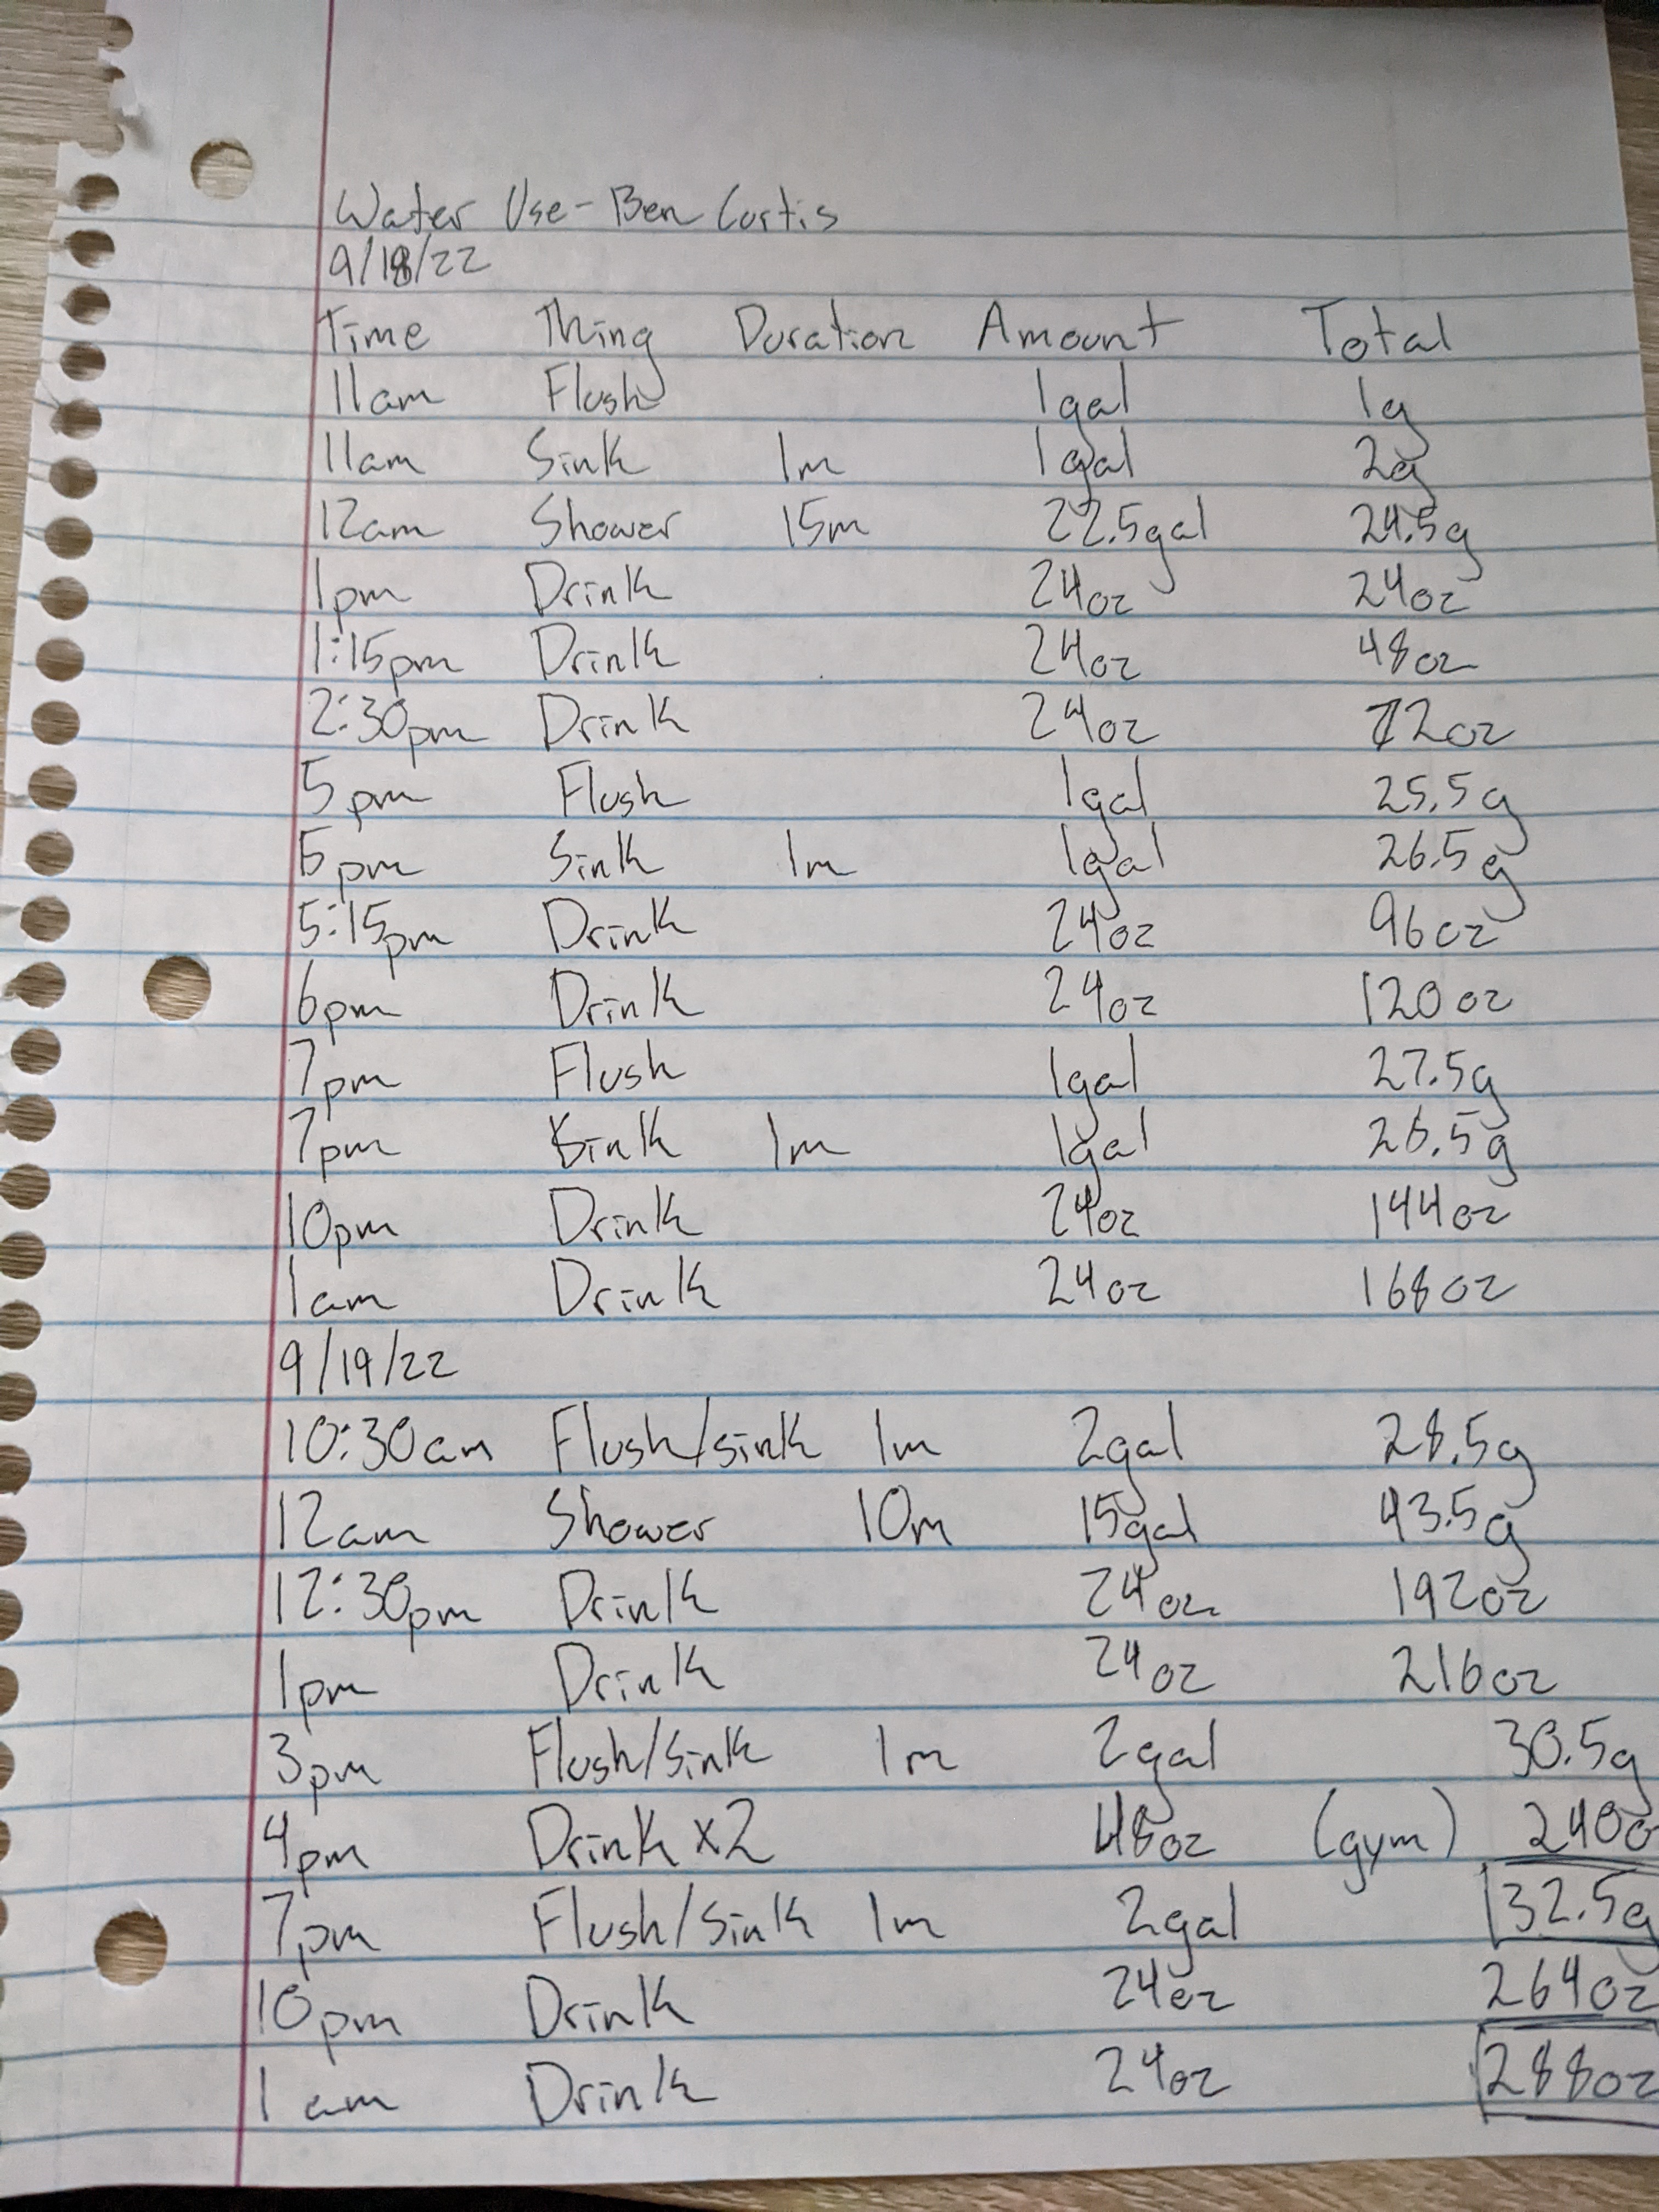 Water Use - Ben Curtis
9/18/22
Time Thing Duration Amount Total
11am Flush 1gal 1g
11am Sink 1m 1gal 2g
12am Shower 15m 22.5gal 24.5g
1pm Drink 24oz 24oz
1:15pm Drink 24oz 48oz
2:30pm Drink 24oz 72oz
5pm Flush 1gal 25.5g
5pm Sink 1m 1gal 26.5g
5:15pm Drink 24oz 96oz
6pm Drink 24oz 120oz
7pm Flush 1gal 27.5g
7pm Sink 1m 1gal 26.5g
10pm Drink 24oz 144oz
1am Drink 24oz 168oz
9/19/22
10:30am Flush/sink 1m 2gal 28.5g
12am Shower 10m 15gal 43.5g
12:30pm Drink 24oz 192oz
1pm Drink 24oz 216oz
3pm Flush/Sink 1m 2gal 30.5g
4pm Drink x2 48oz (gym) 240o
7pm Flush/Sink 1m 2gal 32.5g
10pm Drink 24oz 264oz
1am Drink 24oz 288oz